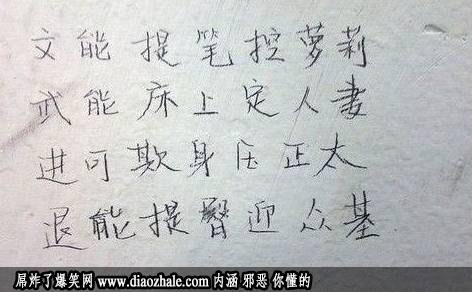 文能提笔控萝莉
武能床上定人妻
进可欺身压正太
退能提臀迎众基
屌炸了爆笑网 www.diaozhale.com 内涵 邪恶 你懂的